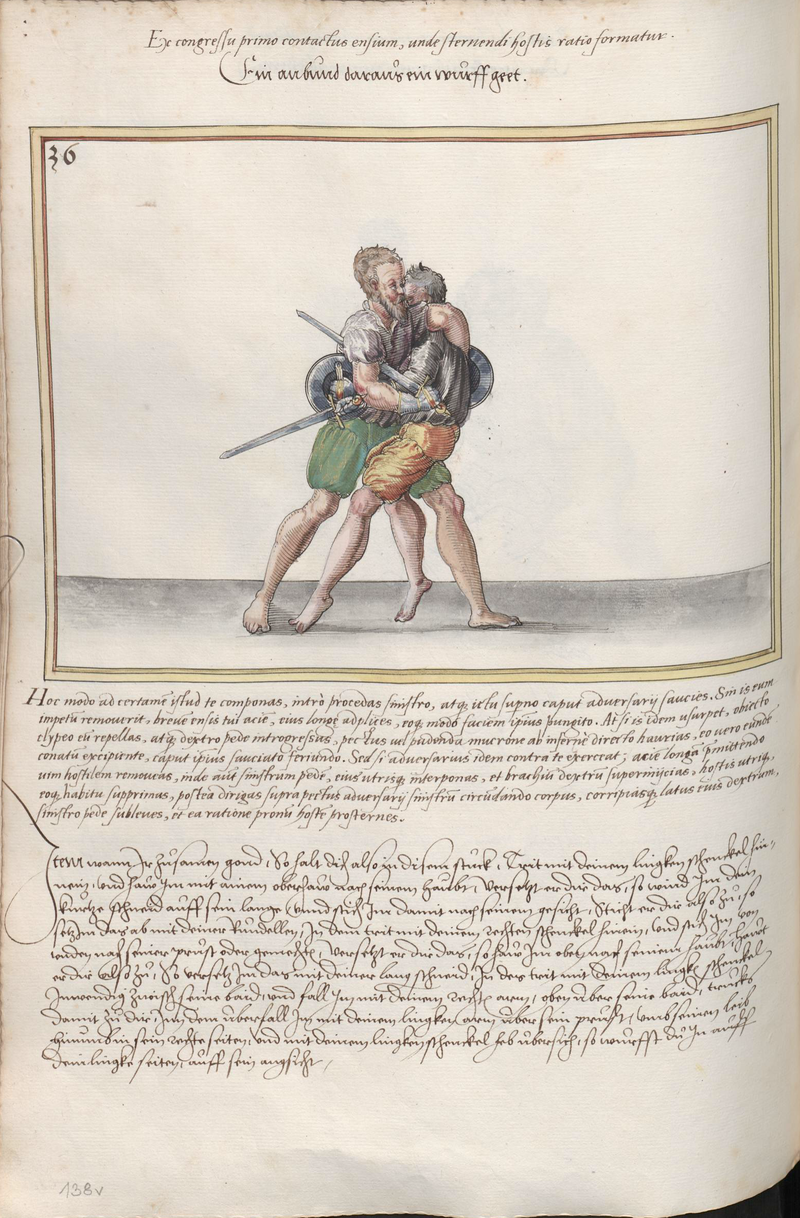 Ex congressu primo contactus ensium, unde sternendi hostis ratio formatur.
Ein anbund daraus ein wurff geet.
36
Hoc modo ad certamē istud te componas, intrò procedas sinistro, atq; ictu supno caput adversarij saucies. Sin is eum
impetū removerit, breve ensis tui aciē, eius longę adplices, eoq; modo faciem ipsius pungito. At si is idem usurpet, obiecto
clypeo eū repellas, atq; dextro pede introgressus, pectus vel pudenda mucrone ab infernè directo haurias, eo vero eundē
conatū excipiente, caput ipsius sauciato feriundo. Sed si adversarius idem contra te exerceat, acie longa p̄mittendo
vim hostilem removeas, inde aūt sinistrum pedē, eius utrisq; interponas, et brachiū dextrū superinijcias, hostis utriq;,
eoq; habitu supprimas, postea dirigas supra pectus adversarij sinistrū circūdando corpus, corripiasq; latus eius dextrum,
sinistro pede subleves, et ea ratione pronū hostē prosternes.
Item wann Ir zusamen gond, So halt dich also in disem stuck, Trit mit deinem lingken schenckel hin,,
nein, und haw Im mit ainem oberhaw nach seinem haubt, Versetzt er dir das, so wind Im dein
kurtze schneid auff sein lange, unnd stich Im damit nach seinem gesicht, Sticht er dir also zu, so
setz Im das ab mit deiner Rundellen, In dem trit mit deinem rechten schenckel hinein, und stich Im von
unden nach seiner prust oder gemecht, Versetzt er dir das, so haw Im oben nach seinem haubt, Hawt
er dir also zu, So versetz Im das mit deiner lang schneid, In des trit mit deinem lingkē schenckel
Inwendig zwischē seine baid, und fall Im mit deinem rechtē arm, oben uber seine baid, trucks
damit zu dir, In dem uberfall Im mit deinem lingken arm uber sein prust, umb seinen leib
hinumb in sein rechte seiten, und mit deinem lingken schenckel heb ubersich, so wurffst du In auff
dein lingke seiten, auff sein angsicht.
138v